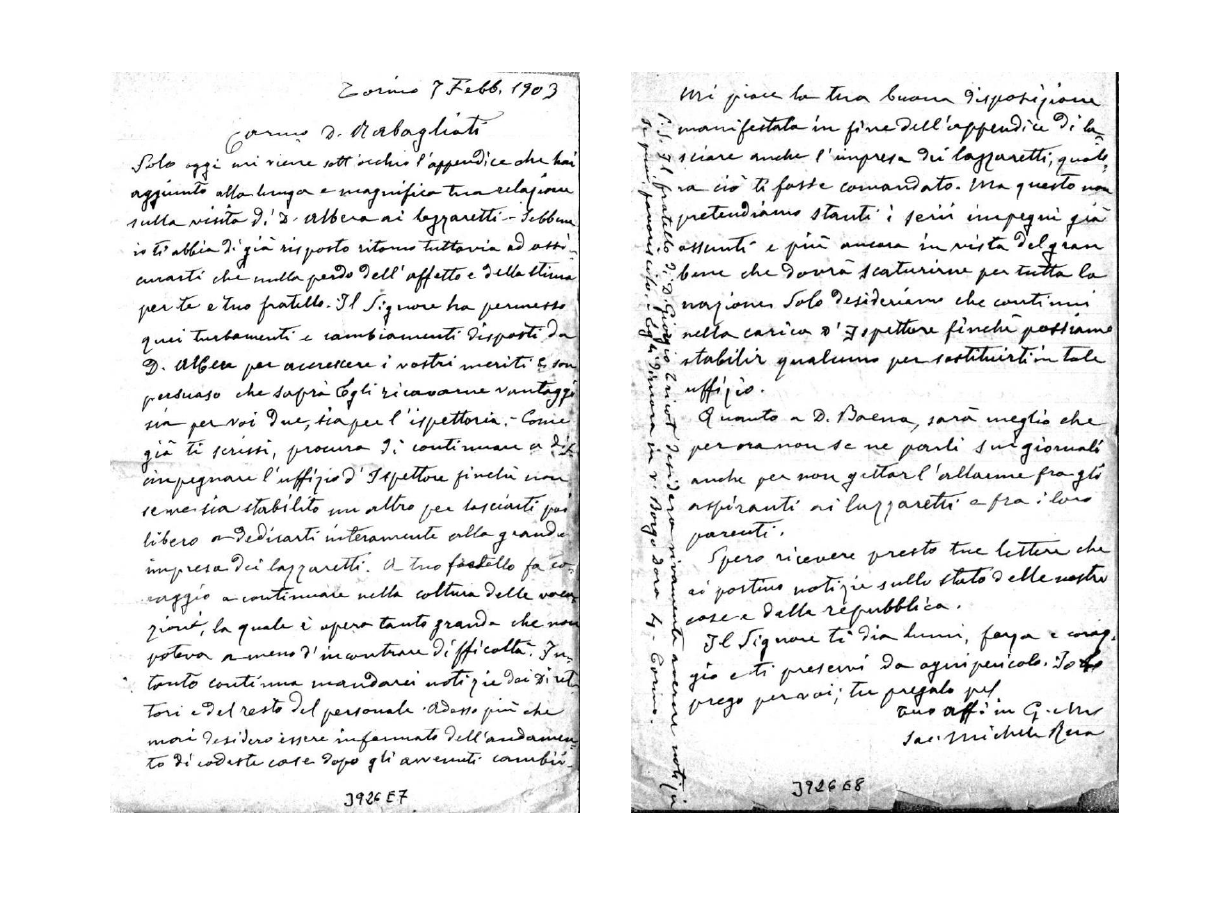 Torino 7 Febb. 1903
Carmo D. Rabagliati
Solo oggi mi viene sott'occhio l'appendice che hai
aggiunto alla lunga e magnifica tua relazione
sulla visita di D. Albera ai lazzaretti - Sebbene
io ti abbia di già risposto ritorno tuttavia ad assi-
curarti che nulla perdo dell'affetto e della stima
per te e tuo fratello. Il Signore ha permesso
quei turbamenti e cambiamenti disposti da
D. Albera per accrescere i vostri meriti e son
persuaso che saprà Egli ricavarne vantaggi
sia per voi due, sia per l'ispettoria. - Come
già ti scrissi, procura di continuare a dis-
impegnare l'uffizio d'Ispettore finchè non
se ne sia stabilito un altro per lasciarti poi
libero a dedicarti interamente alla grande
impresa dei lazzaretti. A tuo fratello fa co-
raggio a continuare nella coltura delle voca-
zioni, la quale è opera tanto grande che non
poteva a meno d'incontrare difficoltà. In-
tanto continua mandarci notizie dei Diret-
tori e del resto del personale. Adesso più che
mai desidero essere informato dell'andamen-
to di codeste case dopo gli avvenuti cambia-
J926 E7
Mi piace la tua buona disposizione
manifestata in fine dell'appendice di la-
sciare anche l'impresa dei lazzaretti, qualo-
ra ciò ti fosse comandato. Ma questo non
pretendiamo stanti i serii impegni già
assunti e più ancora in vista del gran
bene che dovrà scaturirne per tutta la
nazione. Solo desideriamo che continui
nella carica d'Ispettore finchè possiamo
stabilir qualcuno per sostituirti in tale
uffizio.
Quanto a D. Baena, sarà meglio che
per ora non se ne parli sui giornali
anche per non gettar l'allarme fra gli
aspiranti ai lazzaretti e fra i loro
parenti.
Spero ricevere presto tue lettere che
ci portino notizie sullo stato delle nostre
case e della repubblica.
Il Signore ti dia lumi, forza e corag-
gio e ti preservi da ogni pericolo. Io
prego per voi; tu pregalo pel
tuo aff. in G. e M.
Sac. Michele Rua
P.S. Il fratello di D. Giorgio desidera vivamente averne notizie
Egli dimora in v. Borgo Dora - Torino.
J926 E8